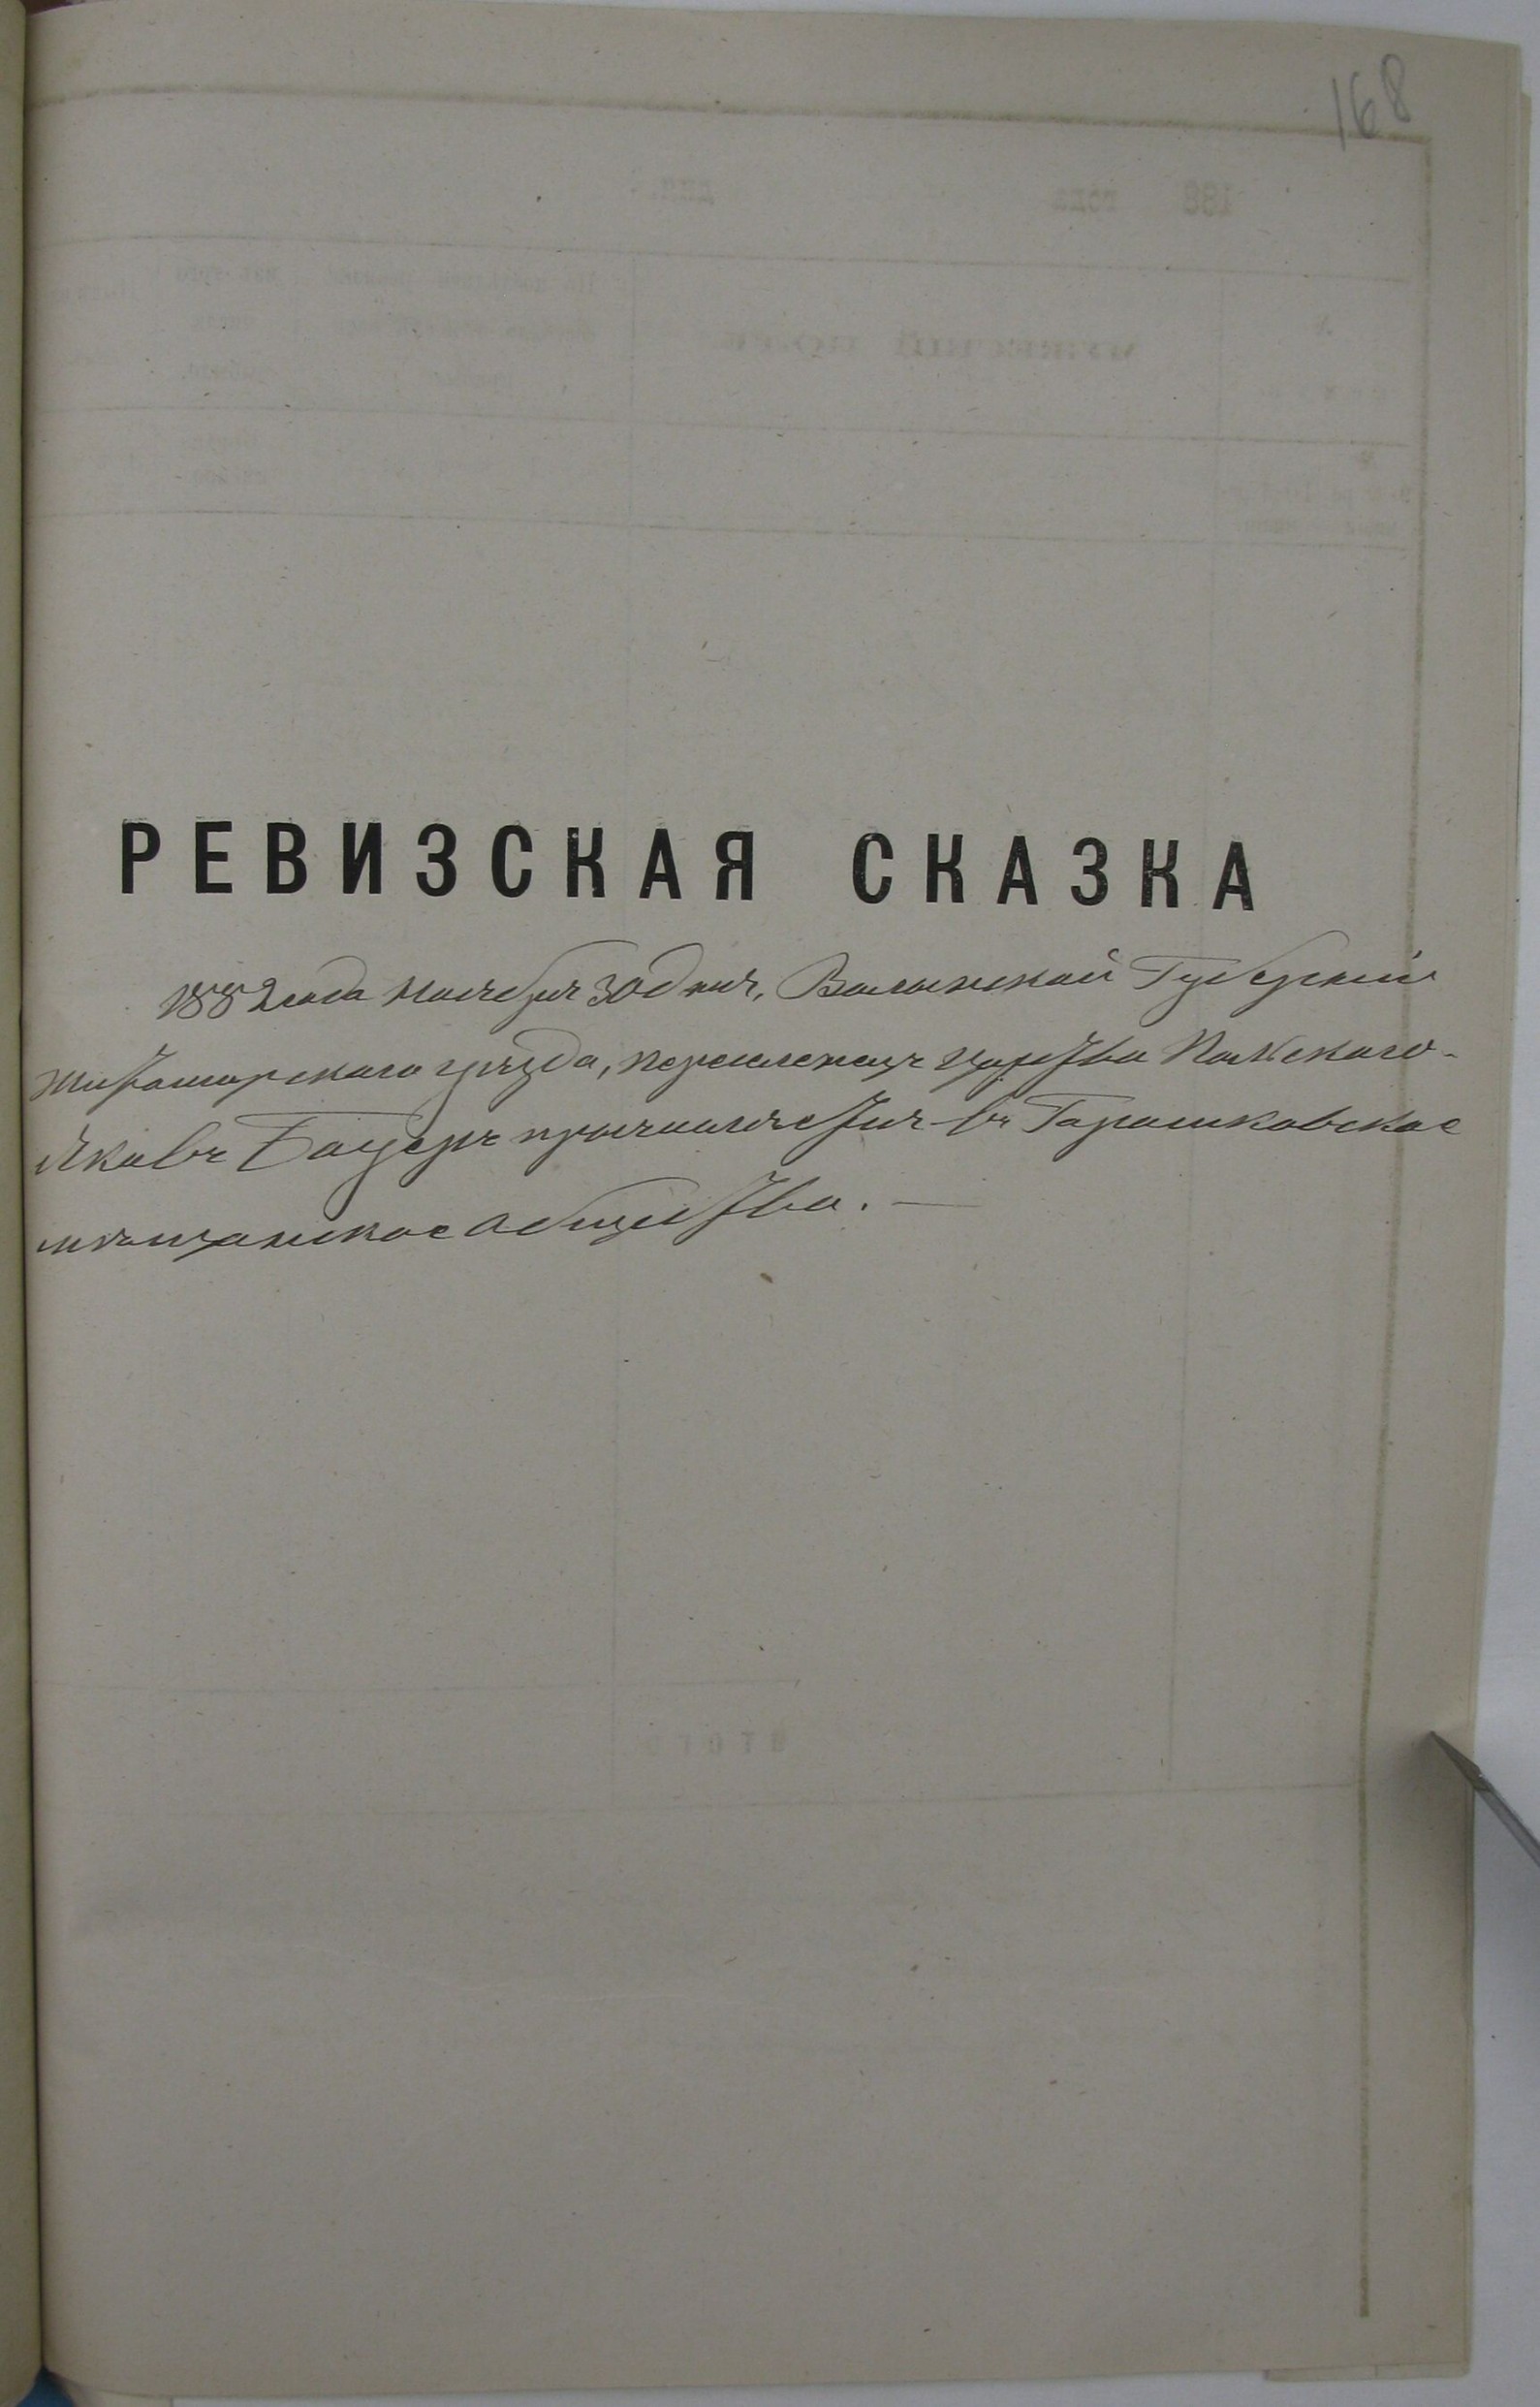 168
РЕВИЗСКАЯ СКАЗКА
1882 года Ноября 30 дня, Волынской Губерніи
Житомирского уѣзда, переселенецъ Царства Польского
Яковъ Бауеръ причисляется въ Горошковское
мѣщанское общество.